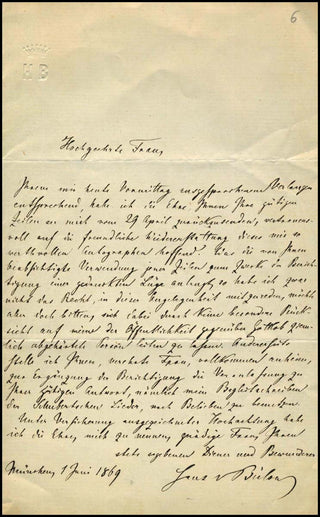 6
H B
Hochgeehrte Frau,
Ihrem mir heute Vormittag ausgesprochenen Verlangen
entsprechend, habe ich die Ehre, Ihnen Ihre gütigen
Zeilen an mich vom 29 April zurückzusenden, vertrauens-
voll auf die freundliche Wiedererstattung dieses mir so
werthvollen Autographen hoffend. Was die von Ihnen
beabsichtigte Verwendung jener Zeilen zum Zwecke der Berich-
tigung einer gedruckten Lüge anlangt, so habe ich zwar
nicht das Recht, in dieser Angelegenheit mitzureden, möchte
aber doch bitten, sich dabei durch keine besondere Rück-
sicht auf meine der Öffentlichkeit gegenüber Gottlob ziem-
lich abgehärtete Person leiten zu lassen. Andrerseits
stelle ich Ihnen, verehrte Frau, vollkommen anheim,
zur Ergänzung der Berichtigung die Veranlassung zu
Ihrer gütigen Antwort, nämlich mein Begleitschreiben
der Schubertschen Lieder, nach Belieben zu benutzen.
Unter Versicherung ausgezeichneter Hochachtung habe
ich die Ehre, mich zu nennen, gnädige Frau, Ihren
stets ergebenen Diener und Bewunderer
München, 1 Juni 1869
Hans v Bülow